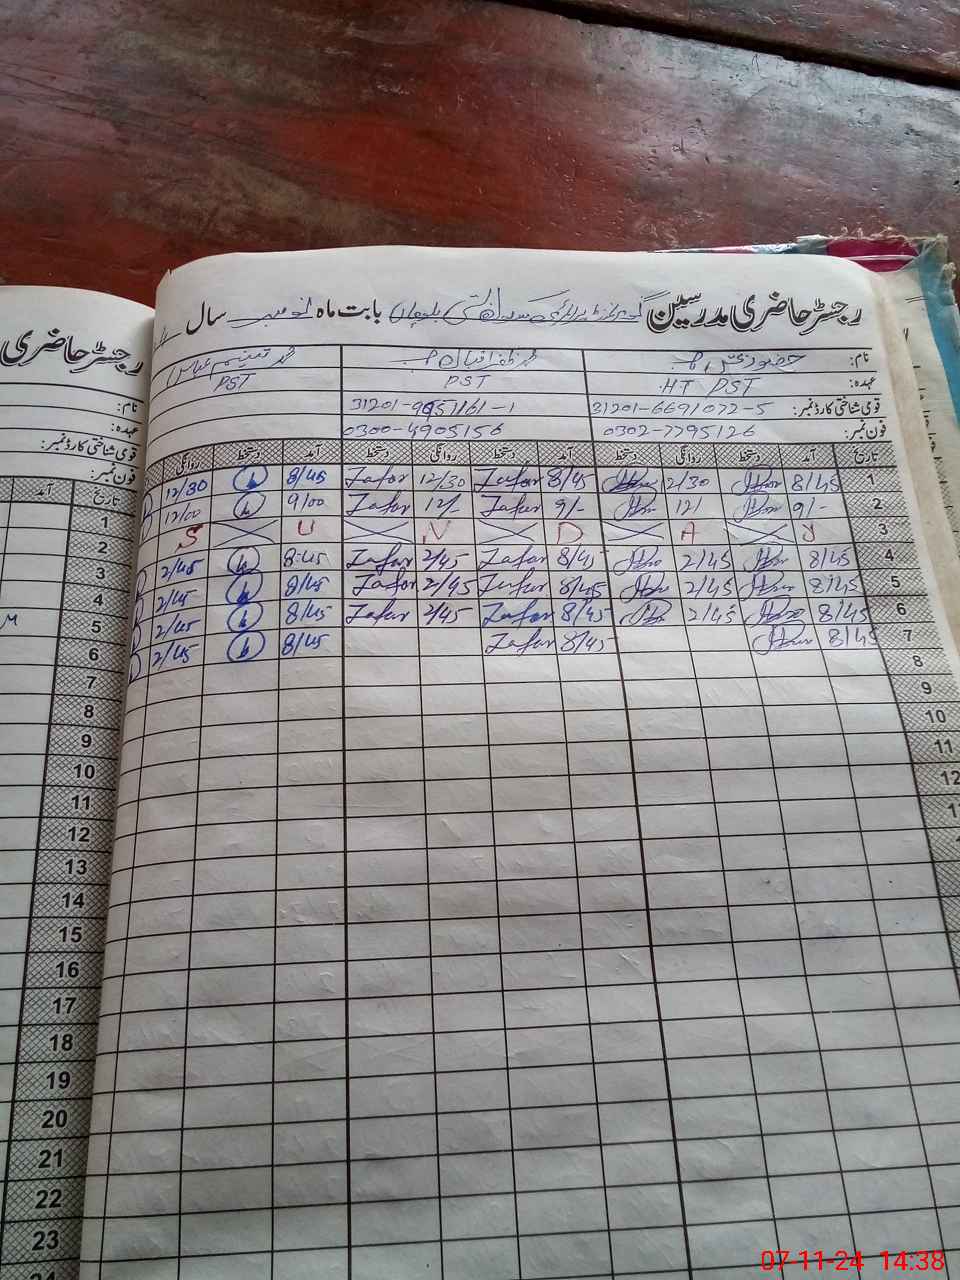 رجسٹر حاضری مدرسین گورنمنٹ پرائمری سکول بستی بلوچاں بابت ماہ نومبر سال
نام: حضور بخش محمد ظفر اقبال محمد تسنیم عباس
عہدہ: HT PST PST PST
قومی شناختی کارڈ نمبر: 31201-6691072-5 31201-9051161-1
فون نمبر: 0302-7795126 0300-4905156
تاریخ آمد دستخط روانگی دستخط آمد دستخط روانگی دستخط آمد دستخط روانگی
1 8/45 2/30 8/45 Zafar 12/30 Zafar 8/45 12/30
2 9/- 12/ 9/- Zafar 12/- Zafar 9/00 12/00
3 S U N D A Y
4 8/45 2/45 8/45 Zafar 2/45 Zafar 8:45 2/45
5 8/45 2/45 8/45 Zafar 2/45 Zafar 8/45 2/45
6 8/45 2/45 8/45 Zafar 2/45 Zafar 8/45 2/45
7 8/45 8/45 Zafar 8/45 2/45
8
9
10
11
12
رجسٹر حاضری
نام:
عہدہ:
قومی شناختی کارڈ نمبر:
فون نمبر:
تاریخ آمد
1
2
3
4
5
6
7
8
9
10
11
12
13
14
15
16
17
18
19
20
21
22
23
24
07-11-24 14:38